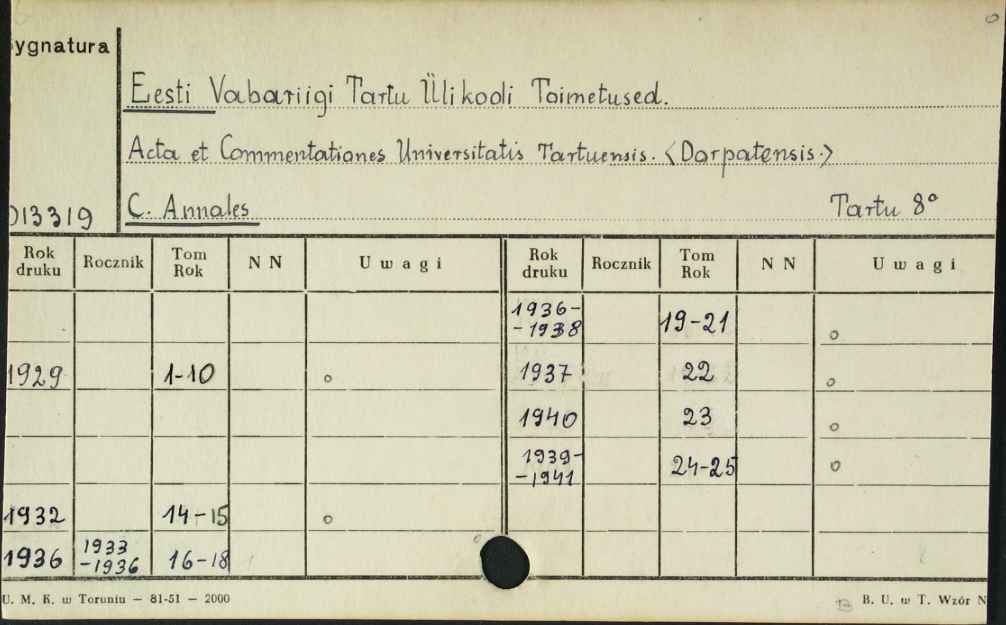 ygnatura
Eesti Vabariigi Tartu Ülikooli Toimetused.
Acta et Commentationes Universitatis Tartuensis. <Dorpatensis.>
013319 C. Annales Tartu 8°
Rok druku Rocznik Tom Rok N N Uwagi Rok druku Rocznik Tom Rok N N Uwagi
1936-
-1938 19-21 o
1929 1-10 o 1937 22 o
1940 23 o
1939-
-1941 24-25 o
1932 14-15 o
1936 1933
-1936 16-18
U. M. K. w Toruniu — 81-51 — 2000 B. U. w T. Wzór N